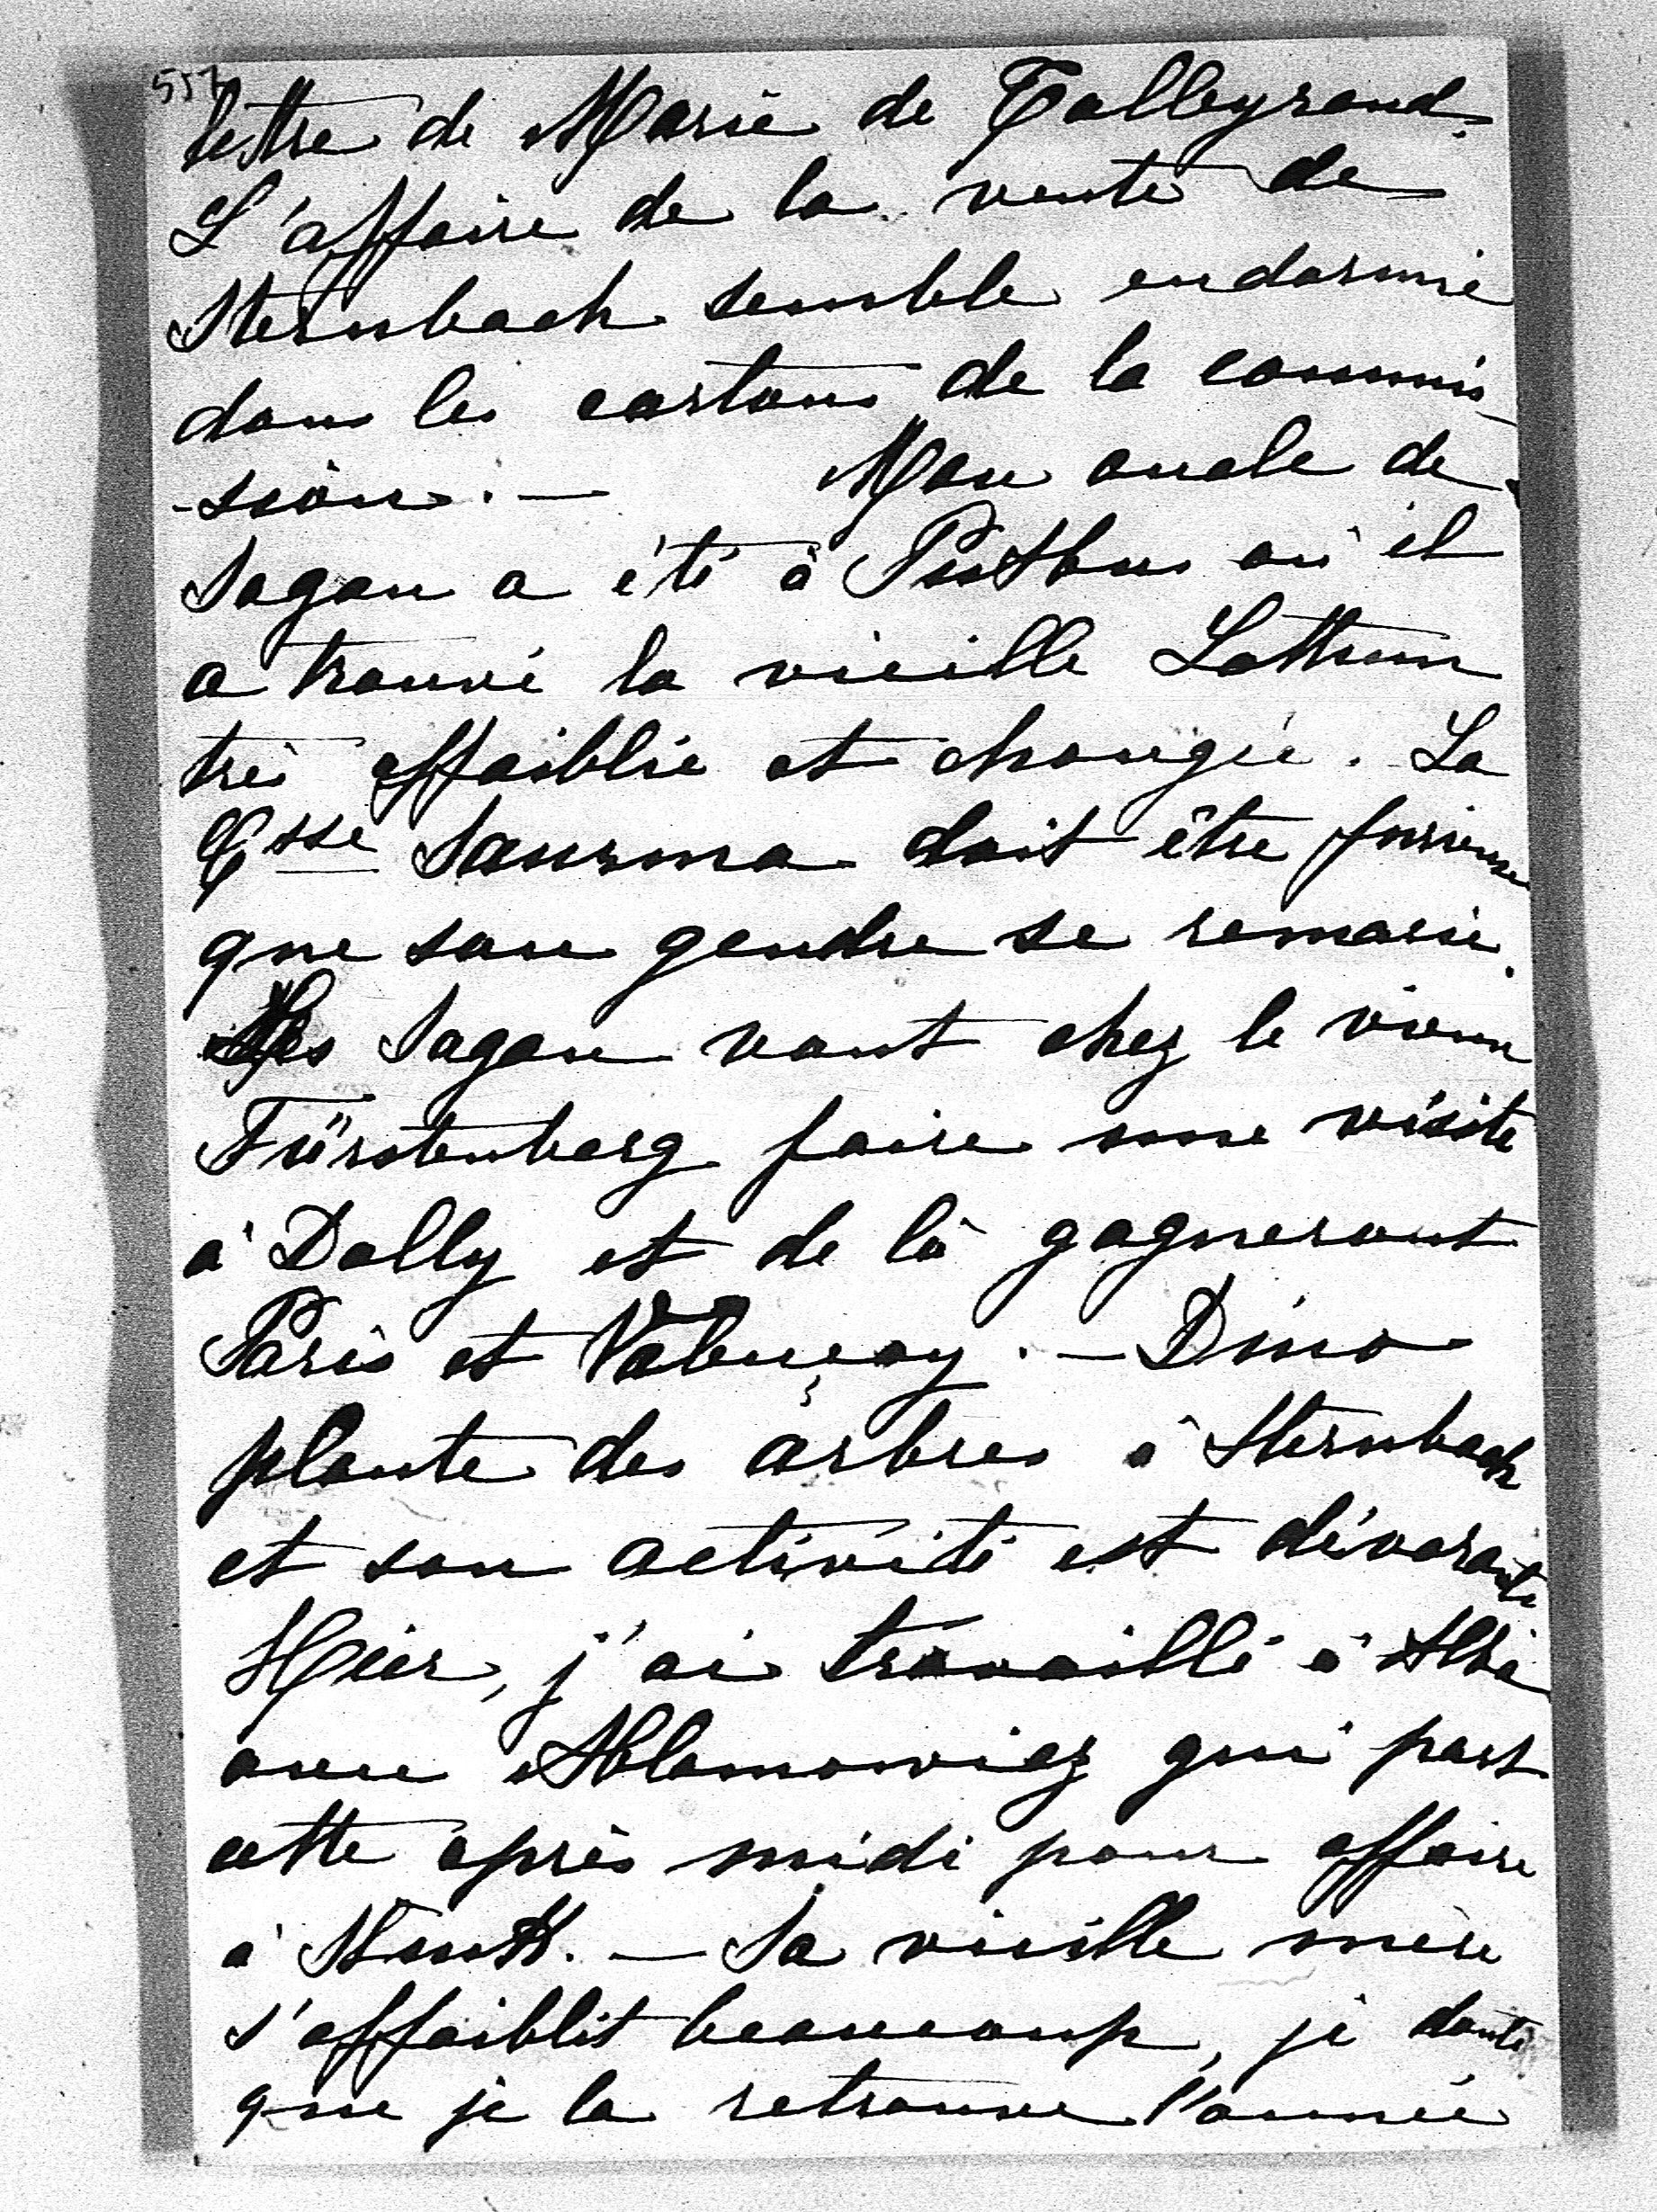 557
lettre de Marie de Talleyrand.
L'affaire de la vente de
Sternbach semble endormie
dans les cartons de la commis-
-sion. — Mon oncle de
Sagan a été à Putbus où il
a trouvé la vieille Lottum
très affaiblie et changée. La
Csse Saurma doit être furieuse
que son gendre se remarie.
Les Sagan vont chez le vieux
Fürstenberg faire une visite
à Dolly et de là gagneront
Paris et Valençay. — Dino
plante des arbres à Sternbach
et son activité est dévorante
Hier, j'ai travaillé à
avec Ablamowicz qui part
cette après midi pour affaire
à — Sa vieille mère
s'affaiblit beaucoup, je doute
que je la retrouve l'année